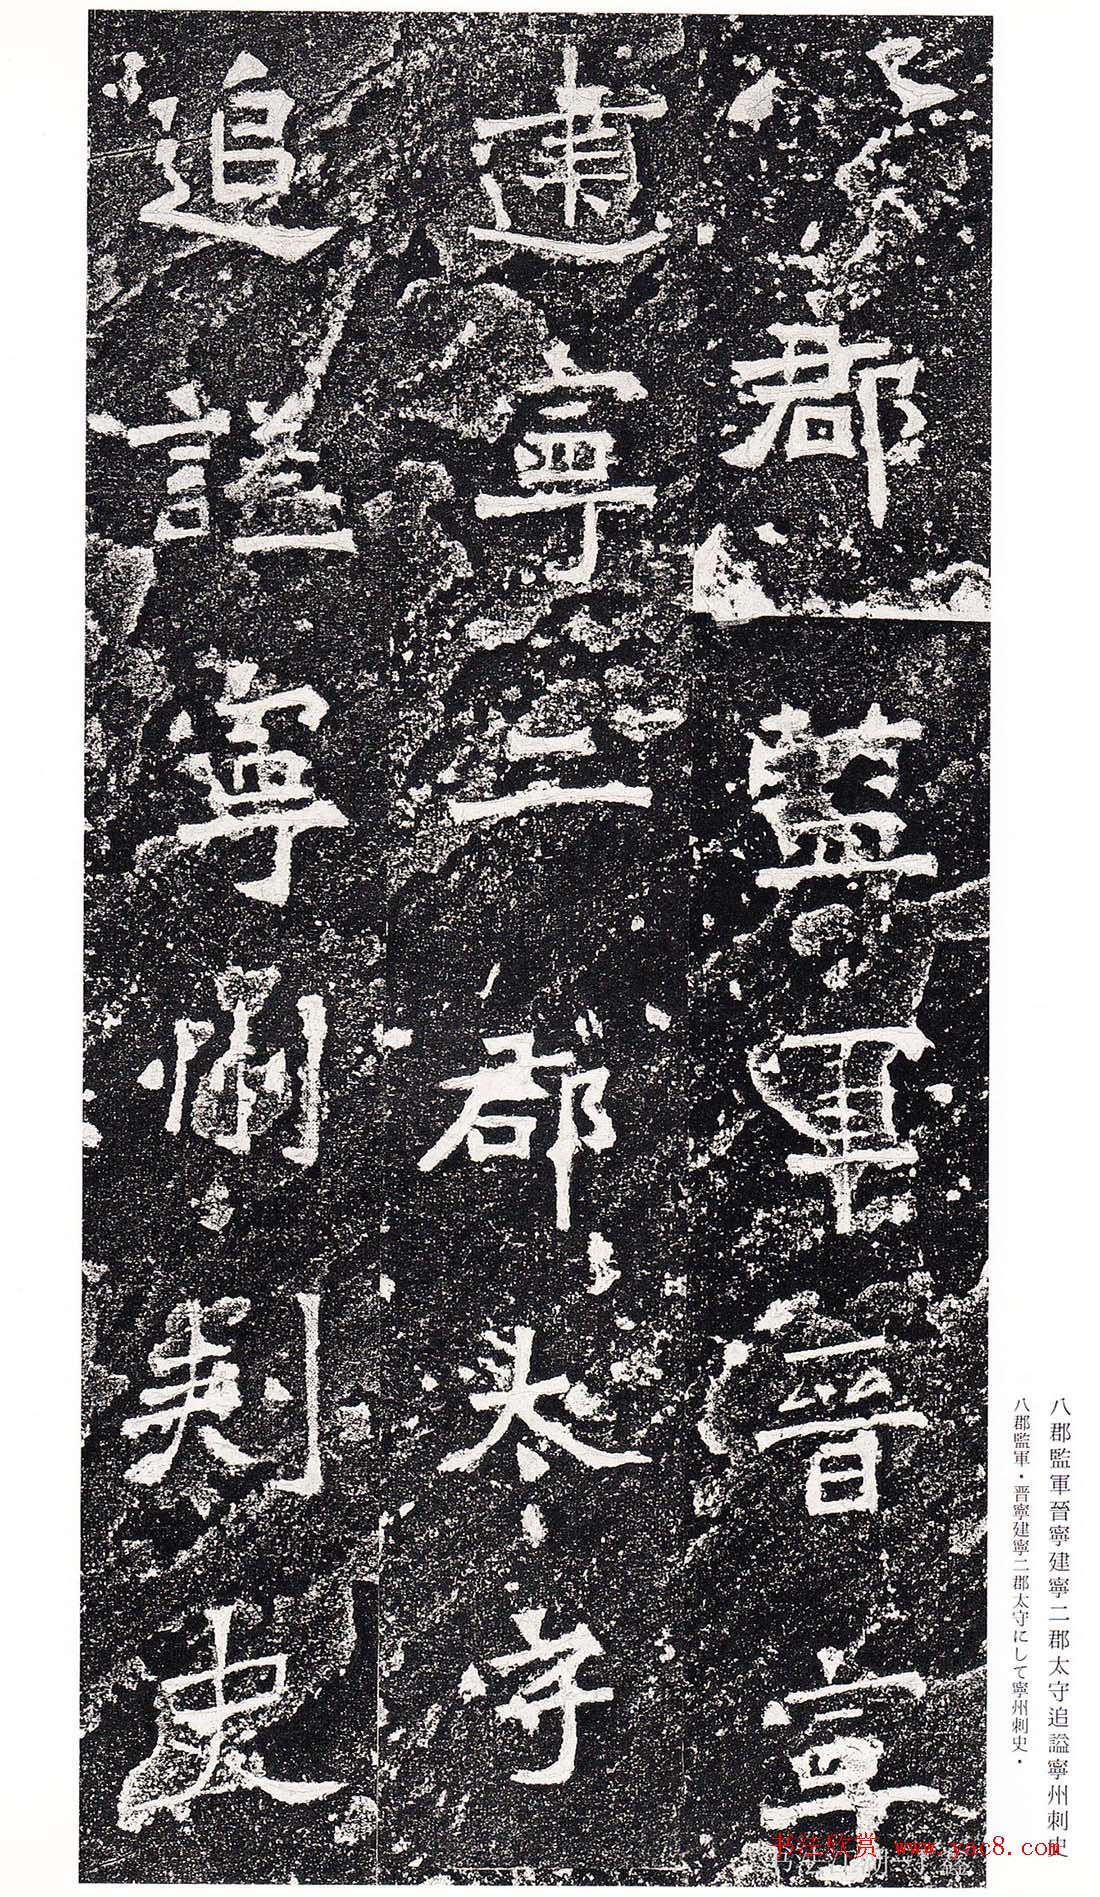 八郡監軍晉寧
建寧二郡太守
追謚寧州刺史
八郡監軍晉寧建寧二郡太守追謚寧州刺史
八郡監軍・晋寧建寧二郡太守にして寧州刺史・
书法欣赏 www.yac8.com